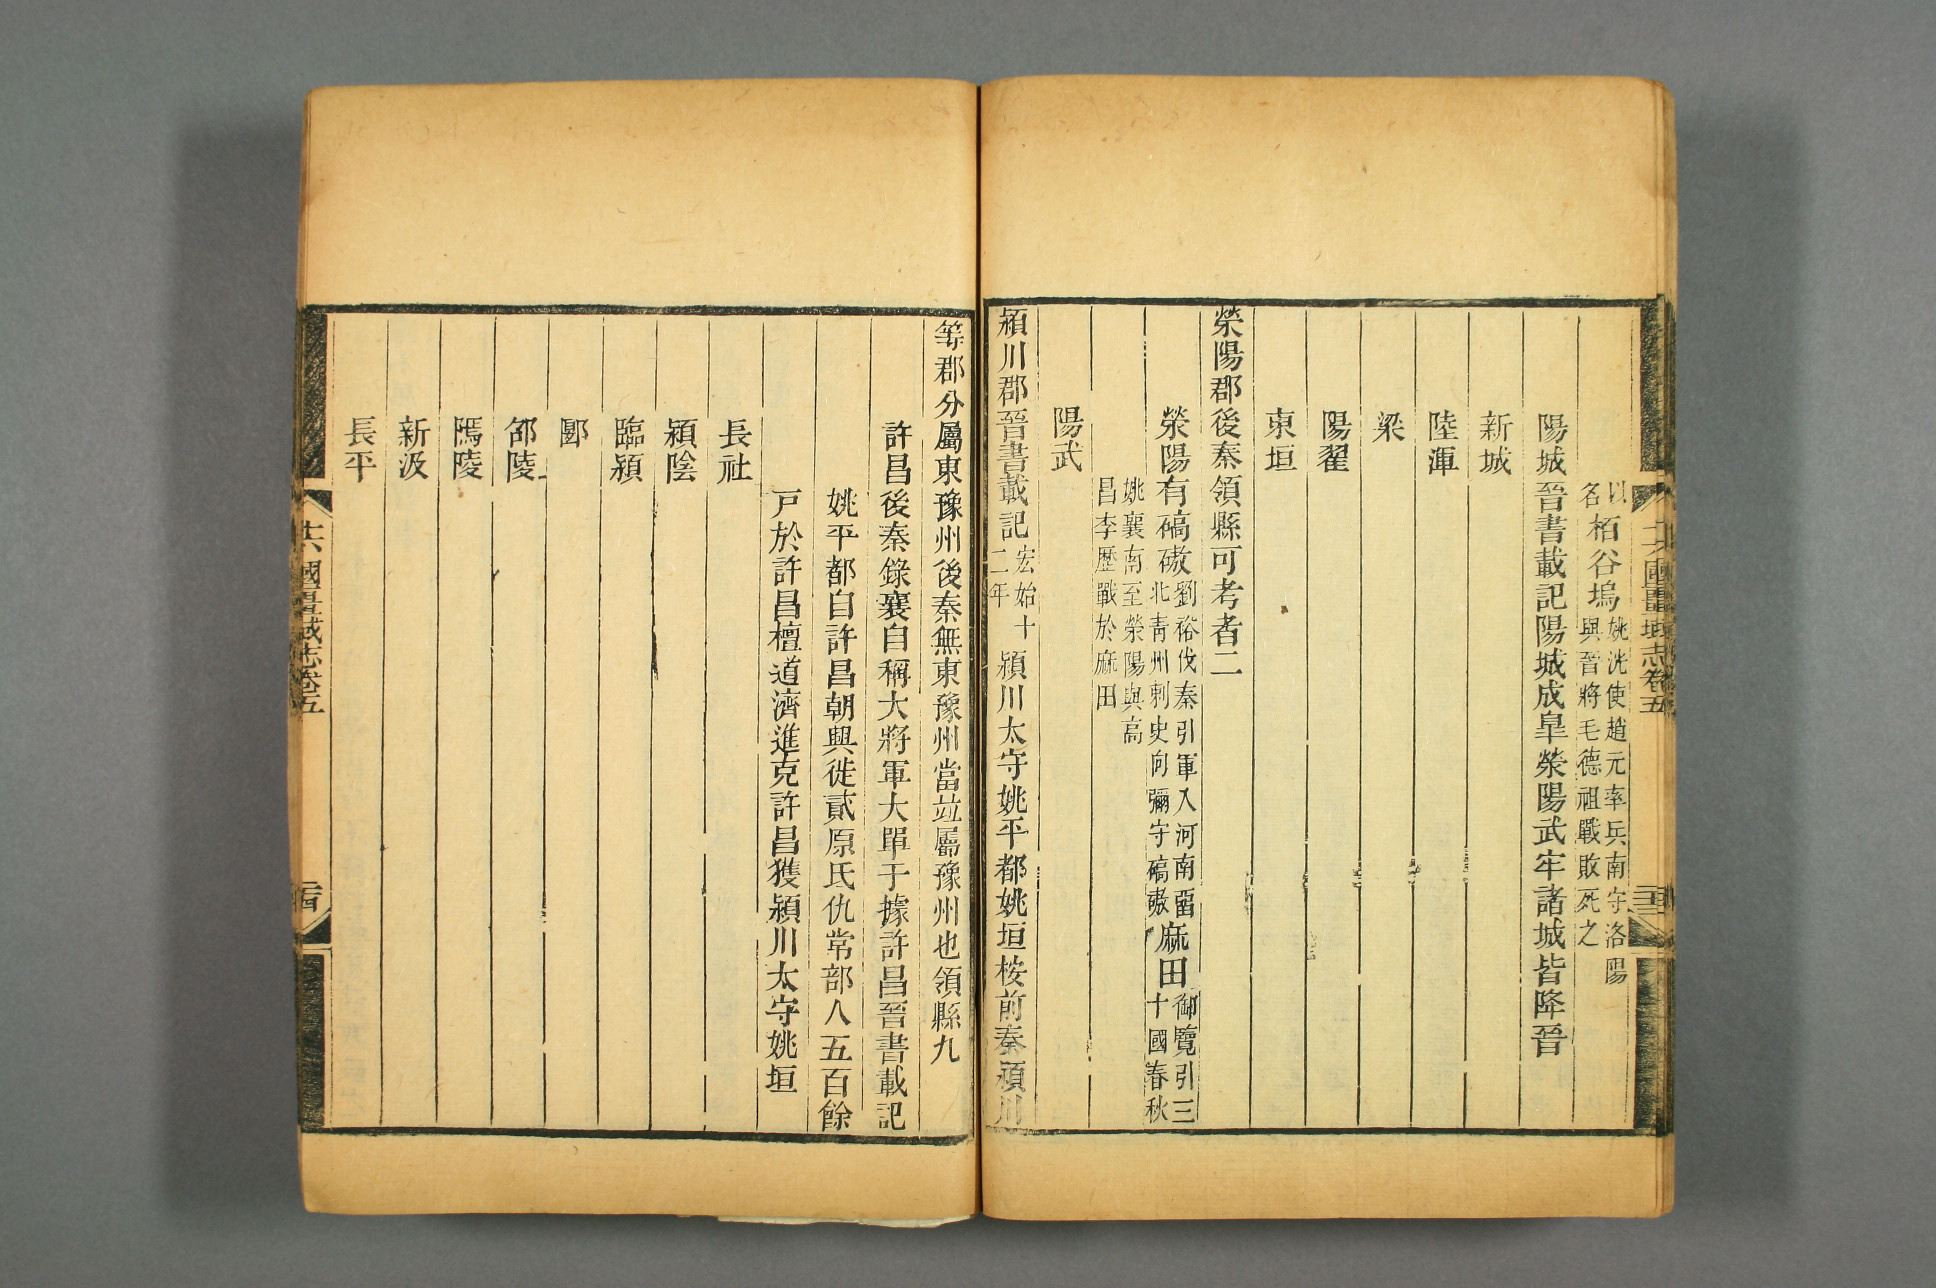 以名柏谷塢姚洸使趙元率兵南守洛陽與晉將毛德祖戰敗死之
陽城晉書載記陽城成皐滎陽武牢諸城皆降晉
新城
陸渾
梁
陽翟
東垣
滎陽郡後秦領縣可考者二
滎陽有碻磝劉裕伐秦引軍入河南留北青州刺史向彌守碻磝麻田御覽引三十國春秋
姚襄南至滎陽與高昌李歷戰於麻田
陽武
潁川郡晉書載記宏始十二年潁川太守姚平都姚垣桉前秦潁川
十六國疆域志卷五
等郡分屬東豫州後秦無東豫州當竝屬豫州也領縣九
許昌後秦錄襄自稱大將軍大單于據許昌晉書載記
姚平都自許昌朝興徙貳原氐仇常部人五百餘
戸於許昌檀道濟進克許昌獲潁川太守姚垣
長社
潁陰
臨潁
郾
邰陵
隖陵
新汲
長平
十六國疆域志卷五